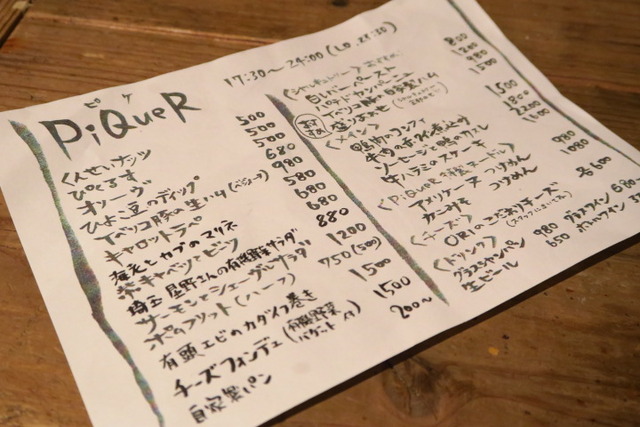 ピケ
PiQueR
17:30～24:00 (L.O. 23:30)
くんせいナッツ 500
ぴくるす 500
オリーヴ 500
ひよこ豆のディップ 680
イベリコ豚の生ハム 980
キャロットラペ 580
海老とカブのマリネ 680
紫キャベツとビーツ 680
埼玉 星野さんの有機野菜サラダ 880
サーモンとシェーブルサラダ 1200
ポテフリット (ハーフ) 750 (500)
有頭エビのカダイフ巻き 1500
チーズフォンデュ (有機野菜 バゲット) 1500
自家製パン 200～
〈シャルキュトリー〉
白レバーペースト 800
パテドカンパーニュ 980
イベリコ豚の自家製ハム 1500
盛り合わせ
〈メイン〉
鴨肉のコンフィ 1500
牛肉の赤ワイン煮込み 1800
ソーセージと鴨のカスレ 2200
牛ハラミのステーキ
〈PiQueR 特製ヌードル〉
アメリケーヌつけめん 980
カニつけめん 1080
〈チーズ〉
ORIのこだわりチーズ 各600
〈ドリンク〉
グラスシャンパン 980
生ビール 650
グラスワイン
ボトルワイン